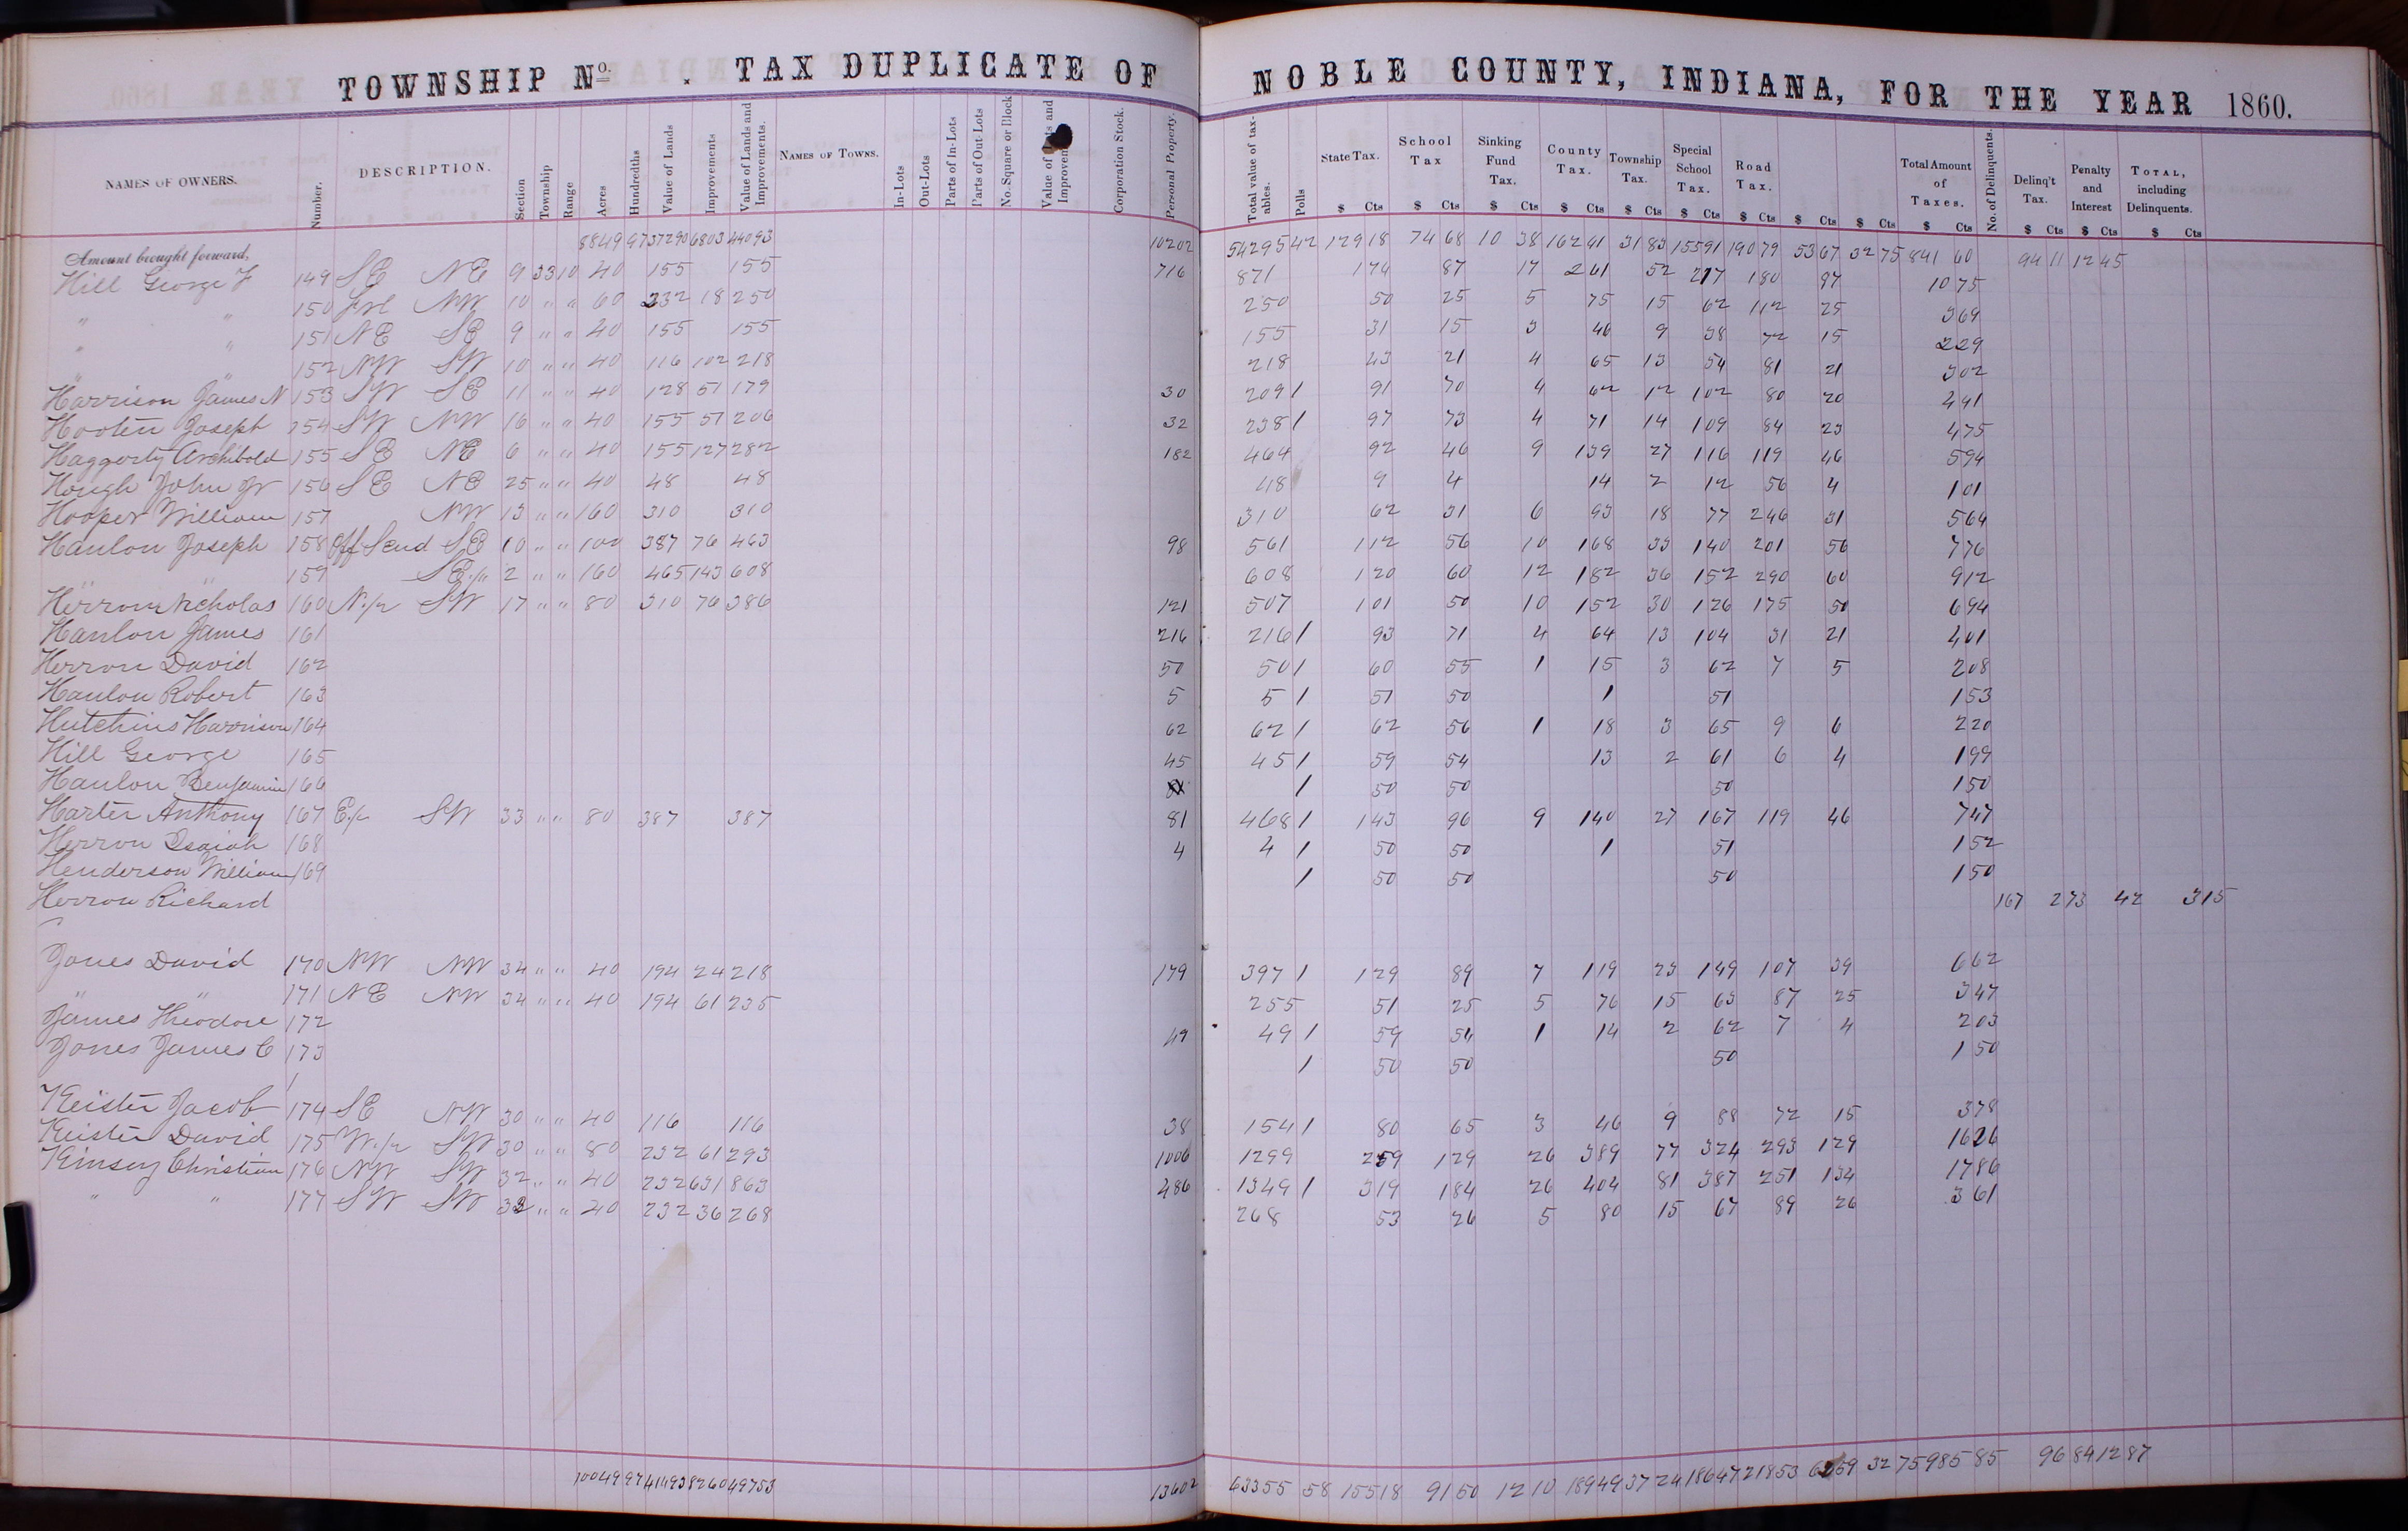 TOWNSHIP No. . TAX DUPLICATE OF NOBLE COUNTY, INDIANA, FOR THE YEAR 1860.
NAMES OF OWNERS. Number. DESCRIPTION. Section Township Range Acres Hundredths Value of Lands Improvements Value of Lands and Improvements. NAMES OF TOWNS. In-Lots Out-Lots Parts of In-Lots Parts of Out-Lots No. Square or Block Value of and Improvem Corporation Stock. Personal Property. Total value of taxables. Polls State Tax. School Tax Sinking Fund Tax. County Tax. Township Tax. Special School Tax. Road Tax. Total Amount of Taxes. No. of Delinquents. Delinq't Tax. Penalty and Interest TOTAL, including Delinquents.
$ Cts $ Cts $ Cts $ Cts $ Cts $ Cts $ Cts $ Cts $ Cts $ Cts $ Cts $ Cts $ Cts
Amount brought forward, 8849 97 37290 6803 44093 10202 54295 42 129 18 74 68 10 38 162 41 31 83 155 91 190 79 53 67 32 75 841 60 94 11 12 45
Hill George F 149 SE NE 9 33 10 40 155 155 716 871 174 87 17 261 52 217 180 87 10 75
" " 150 frl NW 10 " " 60 232 18 250 250 50 25 5 75 15 62 112 25 3 69
" " 151 NE SE 9 " " 40 155 155 155 31 15 3 46 9 38 72 15 2 29
" " 152 NW SW 10 " " 40 116 102 218 218 43 21 4 65 13 54 81 21 3 02
Harrison James N 153 SW SE 11 " " 40 128 51 179 30 209 1 91 70 4 62 12 1 02 80 20 4 41
Hooten Joseph 154 SW NW 16 " " 40 155 51 206 32 238 1 97 73 4 71 14 1 09 84 23 4 75
Haggerty Archibold 155 SE NE 6 " " 40 155 127 282 182 464 92 46 9 1 39 27 1 16 1 19 46 5 94
Hough John Jr 156 SE NE 25 " " 40 48 48 48 9 4 14 2 12 56 4 1 01
Hooper William 157 NW 13 " " 160 310 310 310 62 31 6 93 18 77 2 46 31 5 64
Hanlon Joseph 158 Off S end SE 10 " " 100 387 76 463 98 561 1 12 56 10 1 68 33 1 40 2 01 56 7 76
" " 159 SE 1/4 2 " " 160 465 143 608 608 1 20 60 12 1 82 36 1 52 2 90 60 9 12
Herron Nicholas 160 N 1/2 SW 17 " " 80 310 76 386 121 507 1 01 50 10 1 52 30 1 26 1 75 50 6 94
Hanlon James 161 216 216 1 93 71 4 64 13 1 04 31 21 4 01
Herron David 162 50 50 1 60 55 1 15 3 62 7 5 2 08
Hanlon Robert 163 5 5 1 51 50 1 51 1 53
Hutchins Harrison 164 62 62 1 62 56 1 18 3 65 9 6 2 20
Hill George 165 45 45 1 59 54 13 2 61 6 4 1 99
Hanlon Benjamin 166 1 50 50 50 1 50
Harter Anthony 167 E 1/2 SW 33 " " 80 387 387 81 468 1 1 43 96 9 1 40 27 1 67 1 19 46 7 47
Herron Isaiah 168 4 4 1 50 50 1 51 1 52
Henderson William 169 1 50 50 50 1 50
Herron Richard 167 2 73 42 3 15
Jones David 170 NW NW 34 " " 40 194 24 218 179 397 1 1 29 89 7 1 19 23 1 49 1 07 39 6 62
" " 171 NE NW 34 " " 40 194 61 255 255 51 25 5 76 15 63 87 25 3 47
James Theodore 172 49 49 1 59 54 1 14 2 62 7 4 2 03
Jones James C 173 1 50 50 50 1 50
Keister Jacob 174 SE NW 30 " " 40 116 116 38 154 1 80 65 3 46 9 88 72 15 3 78
Keister David 175 W 1/2 SW 30 " " 80 232 61 293 1006 1299 2 59 1 29 26 3 89 77 3 24 2 93 1 29 16 26
Kinsey Christian 176 NW SW 32 " " 40 232 631 863 486 1349 1 3 19 1 84 26 4 04 81 3 87 2 51 1 34 17 86
" " 177 SW SW 33 " " 40 232 36 268 268 53 26 5 80 15 67 89 26 3 61
10049 97 41493 8260 49753 13602 63355 58 155 18 91 50 12 10 189 49 37 24 186 47 218 53 62 59 32 75 985 85 96 84 12 87